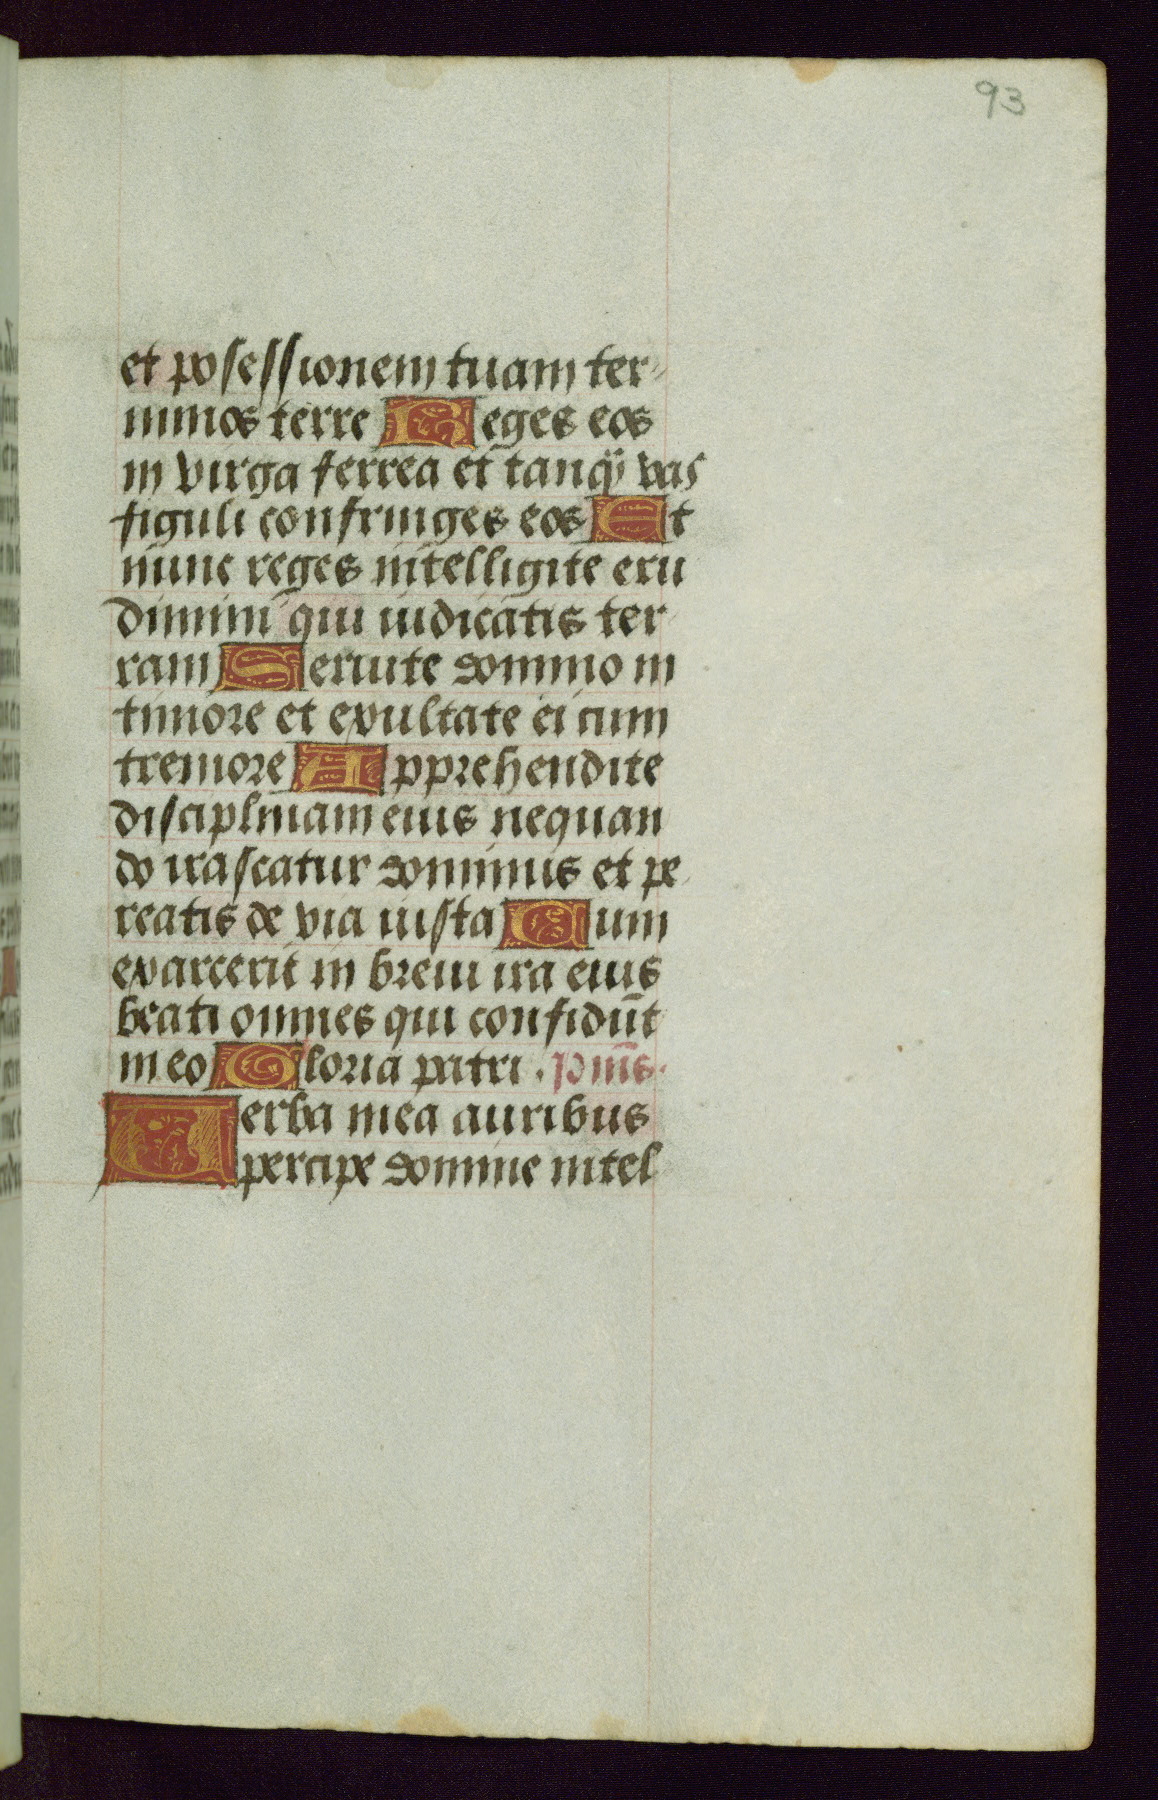 93
et posessionem tuam ter
minos terre Reges eos
in virga ferrea et tanq̃ vas
figuli confringes eos Et
nunc reges intelligite eru
dimini qui iudicatis ter
ram Seruite domino in
timore et exultate ei cum
tremore Apprehendite
disciplinam eius nequan
do irascatur dominus et pe
reatis de via iusta Cum
exarcerit in breui ira eius
beati omnes qui confidūt
in eo Gloria patri . p̄m̄s.
Verba mea auribus
percipe domine intel